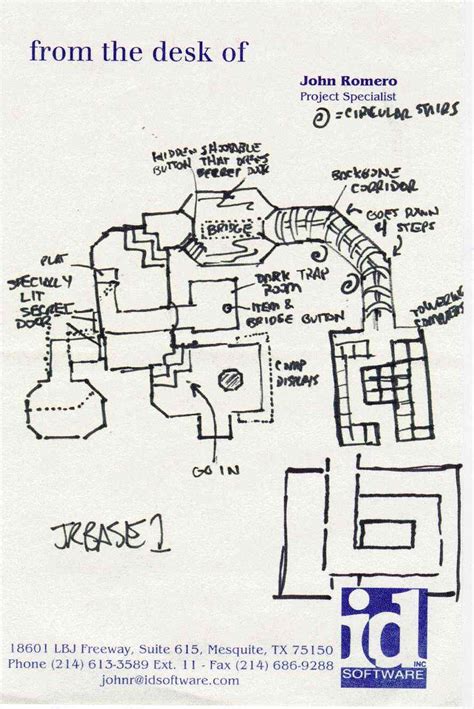 from the desk of
John Romero
Project Specialist
= CIRCULAR STAIRS
HIDDEN SHOOTABLE
BUTTON THAT OPENS
SECRET DOOR
BACKBONE
CORRIDOR
GOES DOWN
4 STEPS
BRIDGE
PLAT
SPECIALLY
LIT
SECRET
DOOR
DARK TRAP
ROOM
ITEM &
BRIDGE BUTTON
TOWERING
COMPUTERS
COMP
DISPLAYS
GO IN
JRBASE1
id
INC
SOFTWARE
18601 LBJ Freeway, Suite 615, Mesquite, TX 75150
Phone (214) 613-3589 Ext. 11 - Fax (214) 686-9288
johnr@idsoftware.com